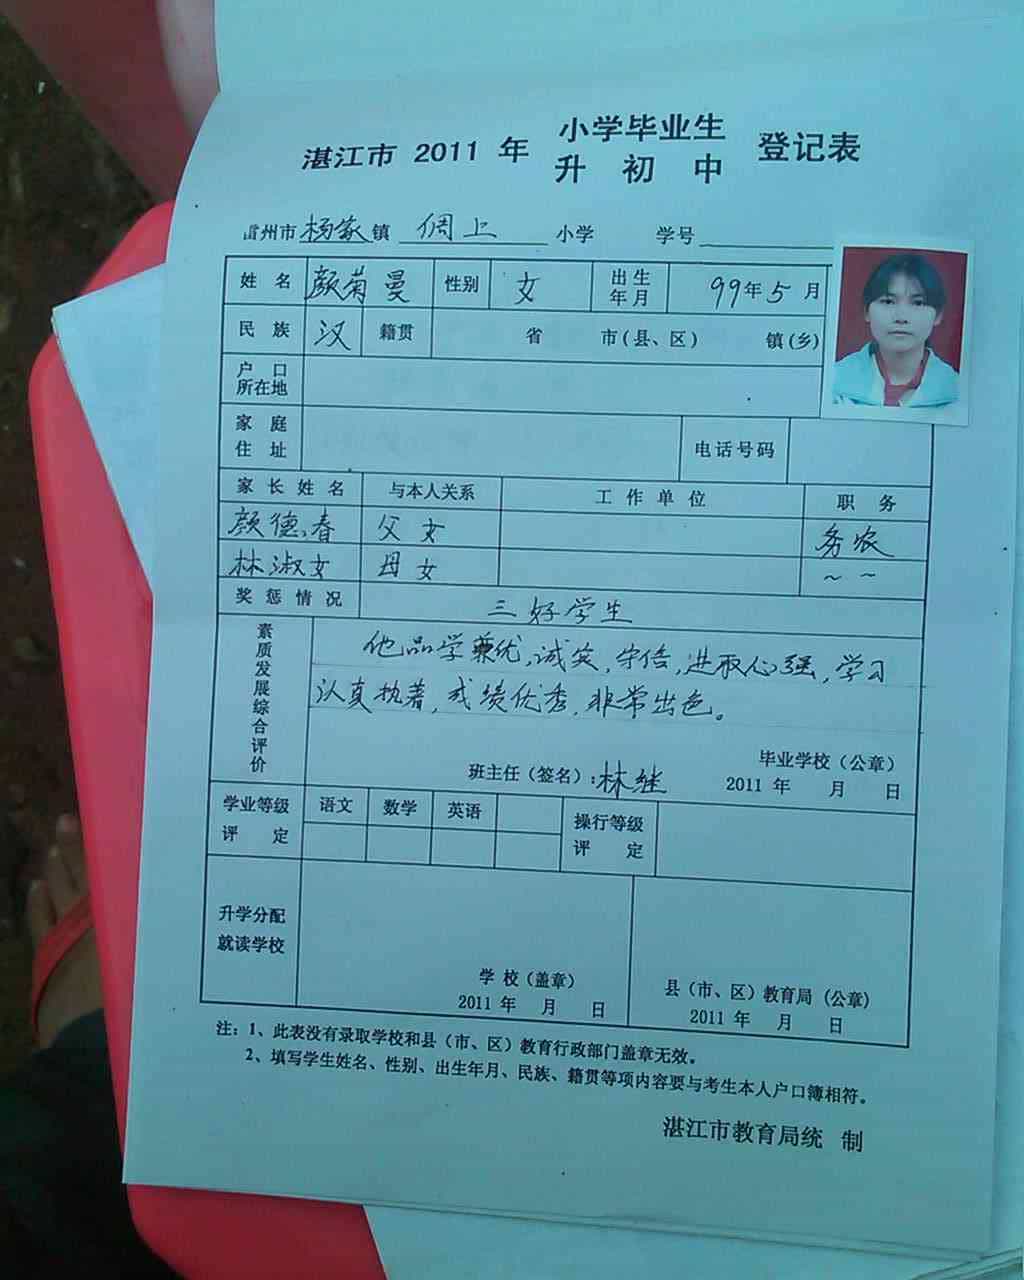 湛江市 2011 年 小学毕业生 登记表
升 初 中
雷州市杨家镇 倜上 小学 学号
姓 名 颜菊曼 性别 女 出生年月 99年5月
民 族 汉 籍贯 省 市(县、区) 镇(乡)
户 口
所在地
家 庭
住 址 电话号码
家长姓名 与本人关系 工作单位 职务
颜德春 父女 务农
林淑女 母女 ~ ~
奖惩情况 三好学生
素质发展综合评价
他品学兼优,诚实,守信,进取心强,学习
认真执著,成绩优秀,非常出色。
毕业学校(公章)
班主任(签名):林继 2011 年 月 日
学业等级 语文 数学 英语 操行等级
评 定 评 定
升学分配
就读学校
学 校(盖章) 县(市、区)教育局(公章)
2011 年 月 日 2011 年 月 日
注:1、此表没有录取学校和县(市、区)教育行政部门盖章无效。
2、填写学生姓名、性别、出生年月、民族、籍贯等项内容要与考生本人户口簿相符。
湛江市教育局统 制